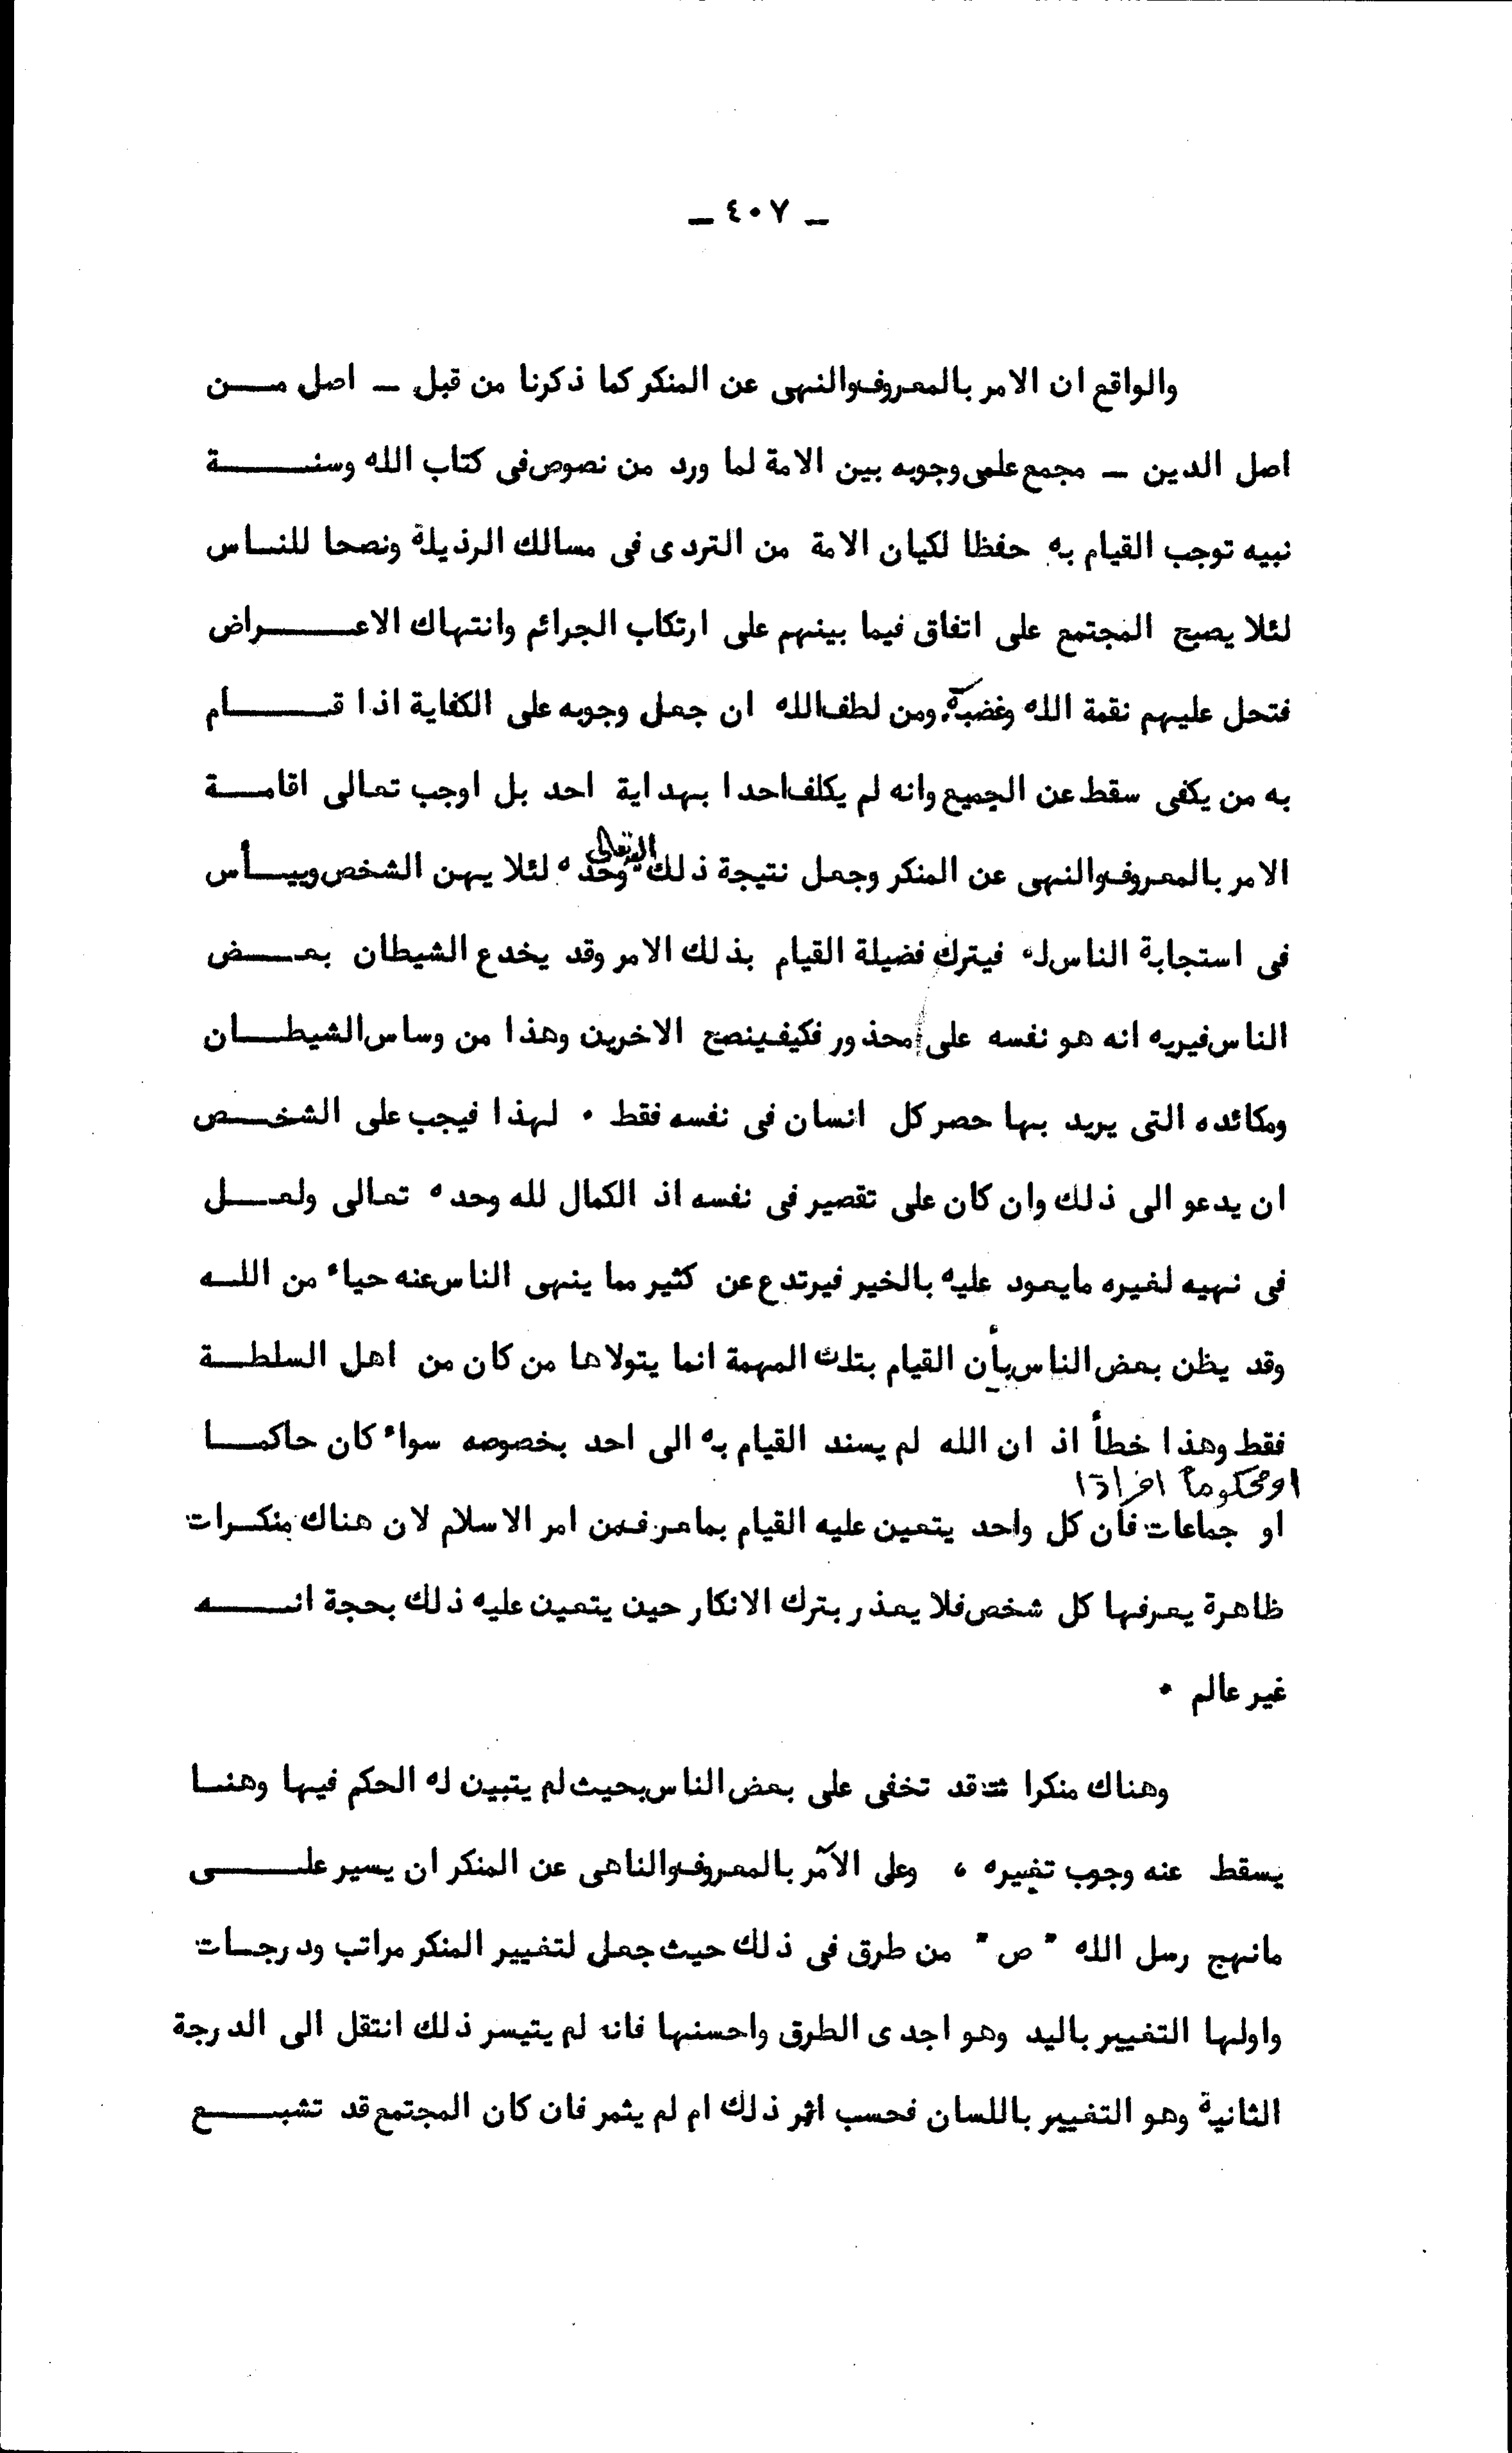 ـ ٤٠٧ ـ
والواقع ان الامر بالمعروف والنهى عن المنكر كما ذكرنا من قبل ـ اصل مــن
اصل الدين ـ مجمع على وجوبه بين الامة لما ورد من نصوص فى كتاب الله وسنــة
نبيه توجب القيام به حفظا لكيان الامة من التردى فى مسالك الرذيلة ونصحا للنــاس
لئلا يصبح المجتمع على اتفاق فيما بينهم على ارتكاب الجرائم وانتهاك الاعــراض
فتحل عليهم نقمة الله وغضبه. ومن لطف الله ان جعل وجوبه على الكفاية اذا قــام
به من يكفى سقط عن الجميع وانه لم يكلف احدا بهداية احد بل اوجب تعالى اقامــة
الامر بالمعروف والنهى عن المنكر وجعل نتيجة ذلك اليه تعالى وحده لئلا يهن الشخص وييــأس
فى استجابة الناس له فيترك فضيلة القيام بذلك الامر وقد يخدع الشيطان بعــض
الناس فيريه انه هو نفسه على محذور فكيف ينصح الاخرين وهذا من وساس الشيطــان
ومكائده التى يريد بها حصر كل انسان فى نفسه فقط ٠ لهذا فيجب على الشخــص
ان يدعو الى ذلك وان كان على تقصير فى نفسه اذ الكمال لله وحده تعالى ولعــل
فى نهيه لغيره مايعود عليه بالخير فيرتدع عن كثير مما ينهى الناس عنه حياء من اللــه
وقد يظن بعض الناس بأن القيام بتلك المهمة انما يتولاها من كان من اهل السلطــة
فقط وهذا خطأ اذ ان الله لم يسند القيام به الى احد بخصوصه سواء كان حاكمــا
او محكوما افرادا
او جماعات فان كل واحد يتعين عليه القيام بما عرف من امر الاسلام لان هناك منكــرات
ظاهرة يعرفها كل شخص فلا يعذر بترك الانكار حين يتعين عليه ذلك بحجة انــه
غير عالم ٠
وهناك منكرا ت قد تخفى على بعض الناس بحيث لم يتبين له الحكم فيها وهنــا
يسقط عنه وجوب تغييره ، وعلى الآمر بالمعروف والناهى عن المنكر ان يسير علــى
مانهج رسل الله " ص " من طرق فى ذلك حيث جعل لتغيير المنكر مراتب ودرجــات
واولها التغيير باليد وهو اجدى الطرق واحسنها فانه لم يتيسر ذلك انتقل الى الدرجة
الثانية وهو التغيير باللسان فحسب اثمر ذلك ام لم يثمر فان كان المجتمع قد تشبــع